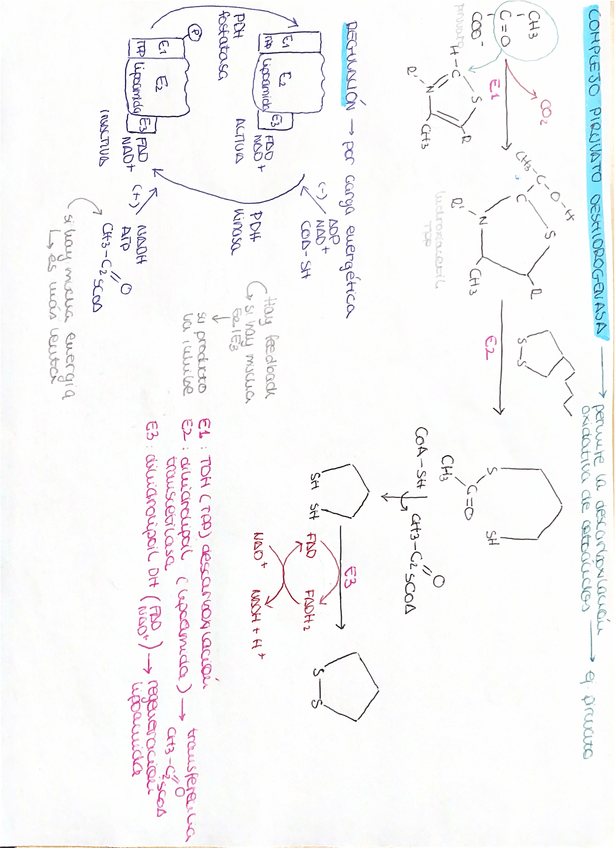 COMPLEJO PIRUVATO DESHIDROGENASA → permite la descarboxilación
oxidativa de cetoácidos → ej piruvato
piruvato
CH3
C=O
COO-
CO2
E1
H-C
S
R'-N
R
CH3
CH3-C-O-H
C
S
R'-N
R
CH3
hidroxiacetil
TPP
E2
S-S
S
SH
C=O
CH3
CoA-SH
CH3-C=O
SCoA
SH SH
E3
FAD
FADH2
NAD+
NADH + H+
S-S
REGULACIÓN → por carga energética
PDH
fosfatasa
E1
TPP
E2
lipoamida
E3
FAD
NAD+
ACTIVA
P
E1
TPP
E2
lipoamida
E3
FAD
NAD+
INACTIVA
(-)
ADP
NAD+
CoA-SH
PDH
kinasa
(+)
NADH
ATP
CH3-C=O
SCoA
si hay mucha energía
↳ es más lenta
Hay feedback
si hay mucha
E2/E3
su producto
la inhibe
E1: PDH (TPP) descarboxilación
E2: dihidrolipoil (lipoamida) → transfiere la
transcetilasa CH3-C=O
SCoA
E3: dihidrolipoil DH (FAD
NAD+) → regeneración
lipoamida